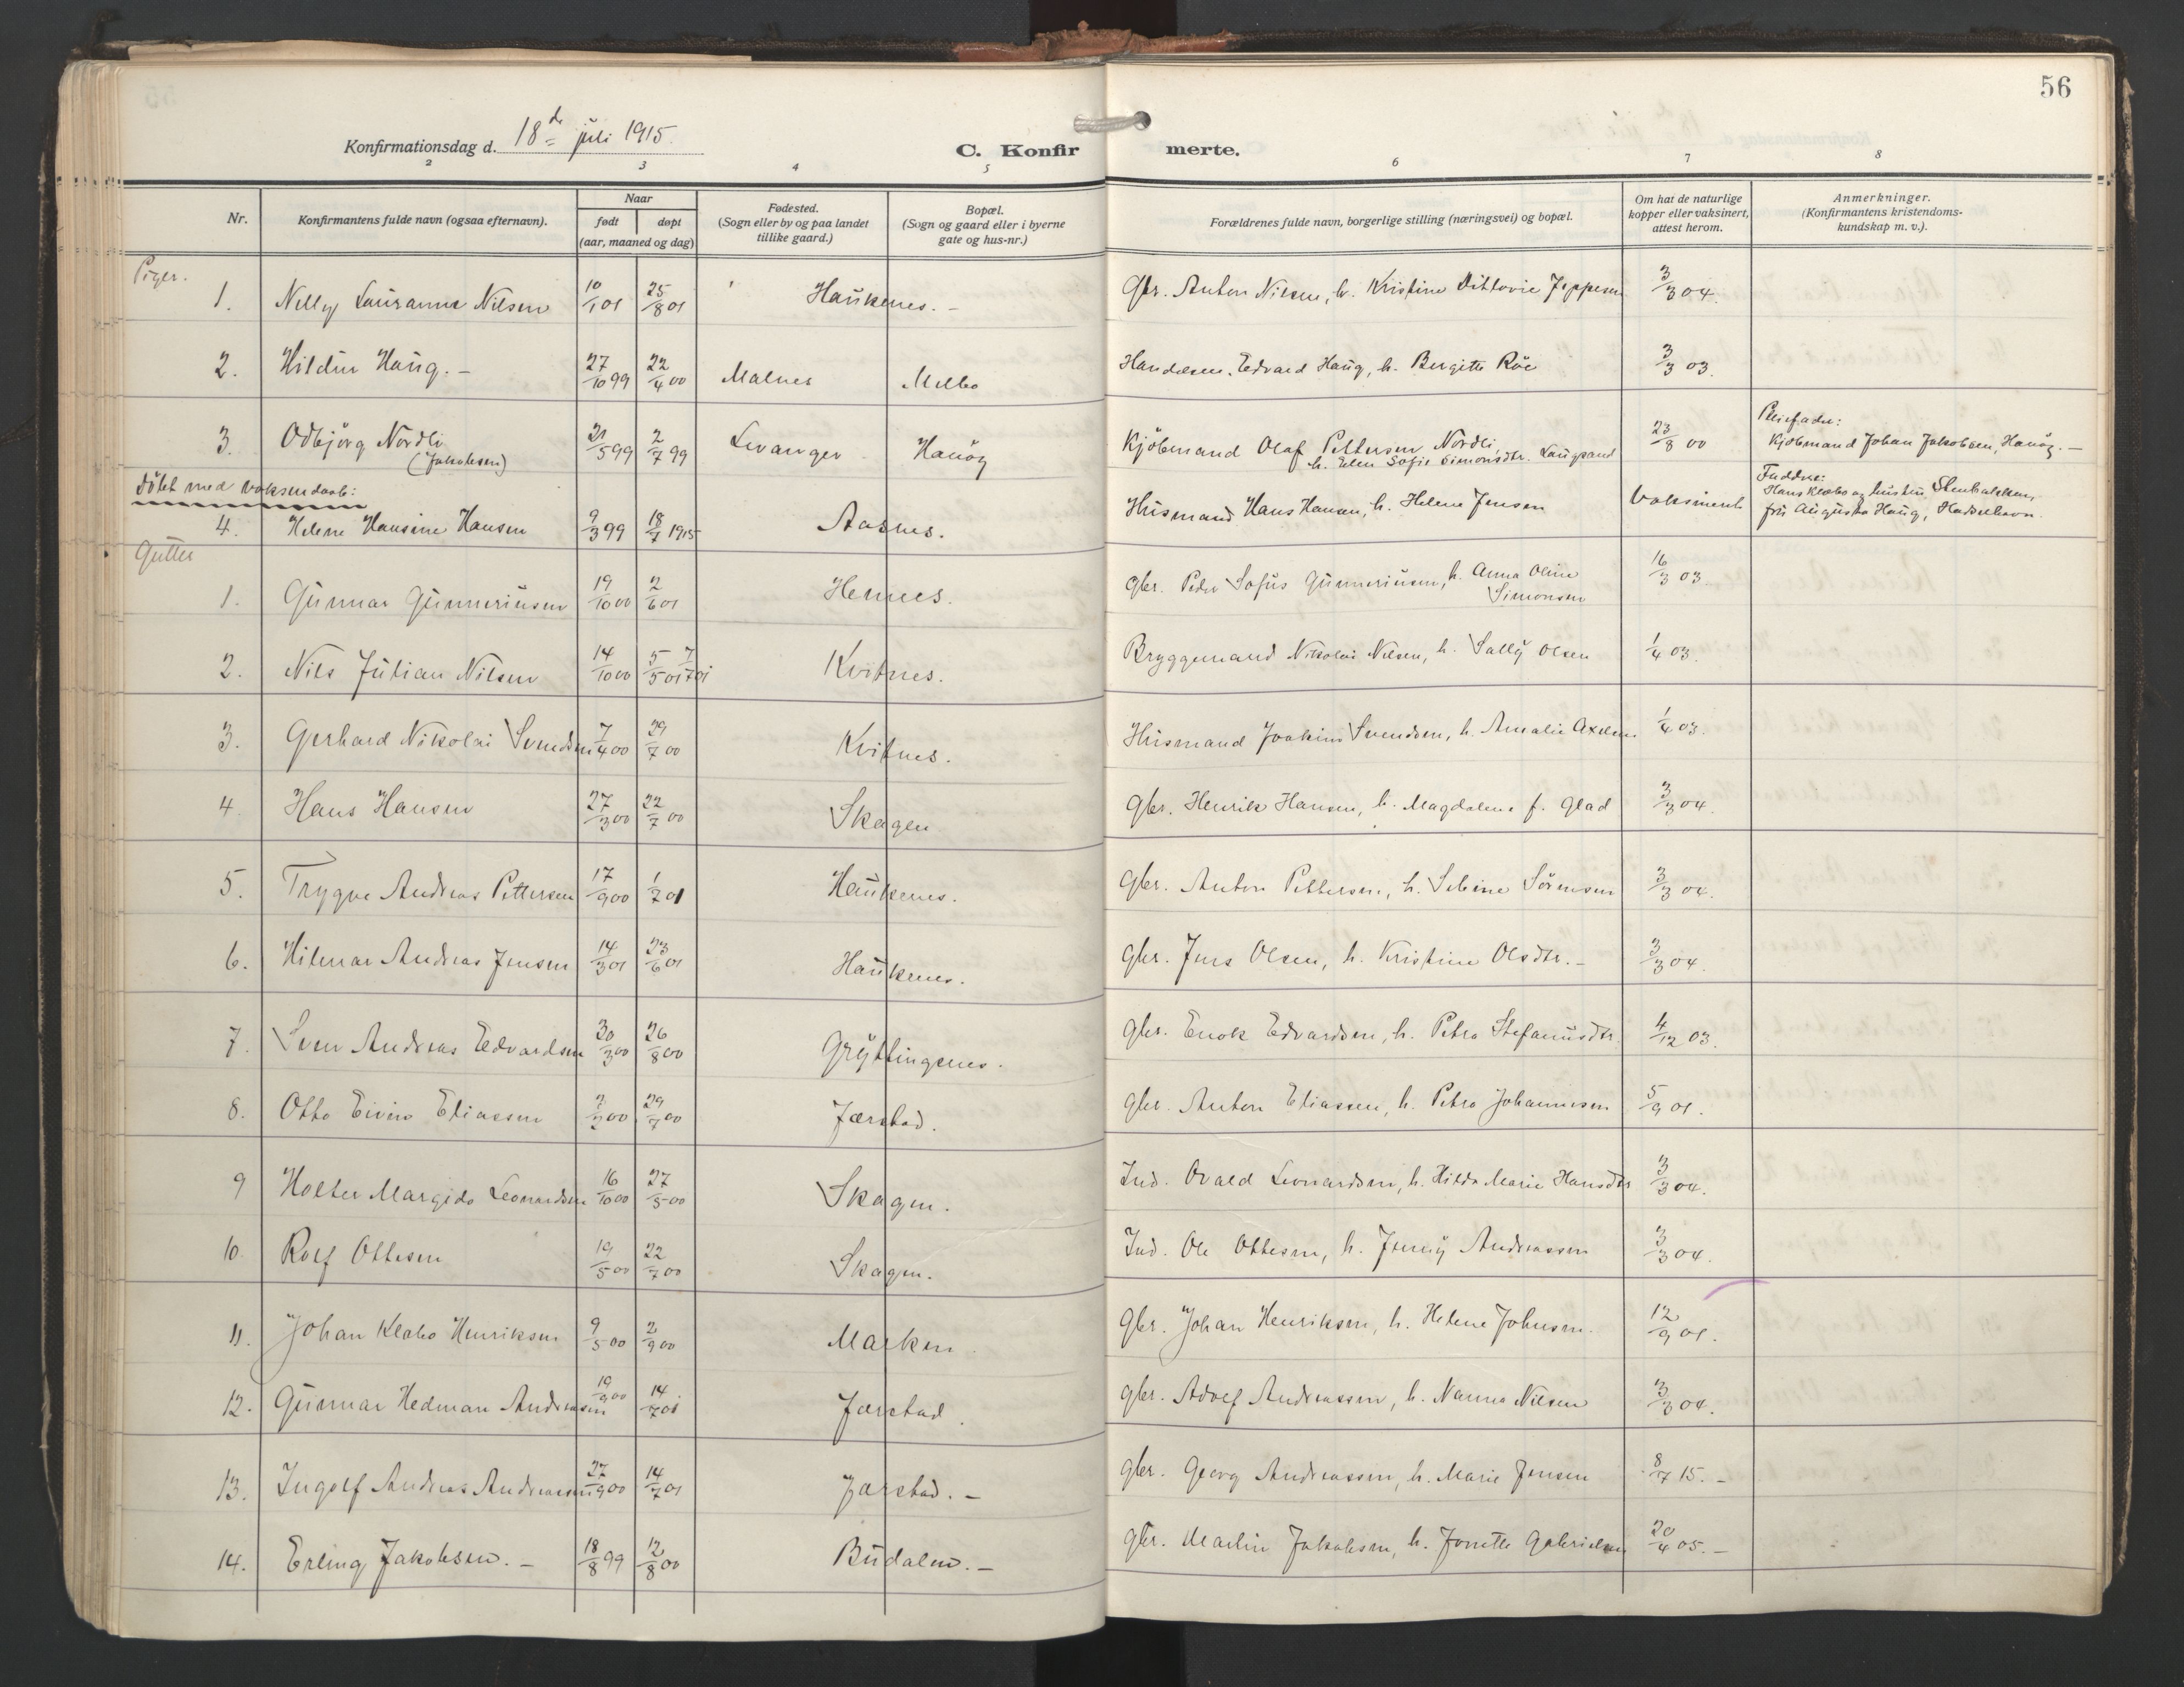 56
Konfirmationsdag d. 18de juli 1915.
C. Konfirmerte.
2 3 4 5 6 7 8
Nr.
Konfirmantens fulde navn (ogsaa efternavn).
Naar
født døpt
(aar, maaned og dag)
Fødested.
(Sogn eller by og paa landet
tillike gaard.)
Bopæl.
(Sogn og gaard eller i byerne
gate og hus-nr.)
Forældrenes fulde navn, borgerlige stilling (næringsvei) og bopæl.
Om hat de naturlige
kopper eller vaksinert,
attest herom.
Anmerkninger.
(Konfirmantens kristendoms-
kundskap m. v.).
Piger.
1. Nelly Lauranna Nilsen 10/1 01 25/8 01 Haukenes. - Gbr. Anton Nilsen, h. Kristine Jeppesen 3/3 04.
2. Hildur Haug. - 27/10 99 22/4 00 Malnes Melbo Handelsm. Edvard Haug, h. Bergitte Röe 3/3 03.
3. Odbjörg Nordli 21/5 99 2/7 99 Levanger Hanöy Kjöbmand Olaf Pettersen Nordli, 23/8 00 Pleiefader:
(Jakobsen) h. Elen Sofie Simonsdtr. Laugsand Kjöbmand Johan Jakobsen, Hanöy. -
Döbt med voksendaab:
4. Helene Hansine Hansen 9/3 99 18/7 1915 Aasnes. Husmand Hans Hansen, h. Helene Jensen Vaksinert Faddere:
Hans Klæbo og hustru, Stenbakken,
fru Augusta Haug, Hadselhavn.
Gutter
1. Gunnar Gunneriusen 19/10 00 2/6 01 Hennes. Gbr. Peder Sofus Gunneriusen, h. Anna Oline 16/3 03.
Simonsen
2. Nils Julian Nilsen 14/10 00 5/5 01 7/7 01 Kvitnes. Bryggemand Nikolai Nilsen, h. Sally Olsen 1/4 03.
3. Gerhard Nikolai Svendsen 7/4 00 29/7 00 Kvitnes. Husmand Joakim Svendsen, h. Amalie Axelsen 1/4 03.
4. Hans Hansen 27/3 00 22/7 00 Skagen. Gbr. Henrik Hansen, h. Magdalene f. Glad 3/3 04.
5. Trygve Andreas Pettersen 17/9 00 1/7 01 Haukenes. Gbr. Anton Pettersen, h. Seline Sörensen 3/3 04.
6. Hilmar Andreas Jensen 14/3 01 23/6 01 Haukenes. Gbr. Jens Olsen, h. Kristine Olsdtr. - 3/3 04.
7. Sven Andreas Edvardsen 30/3 00 26/8 00 Gryttingsnes. Gbr. Enok Edvardsen, h. Petra Stefanusdtr. 4/12 03.
8. Otto Eivin Eliassen 7/2 00 29/7 00 Jærstad. Gbr. Anton Eliassen, h. Petra Johannesen 5/9 01.
9 Holter Margido Leonardsen 16/10 00 27/5 00 Skagen. Ind. Ovald Leonardsen, h. Hilda Marie Hansdtr 3/3 04.
10. Rolf Ottesen 19/5 00 22/7 00 Skagen. Ind. Ole Ottesen, h. Jenny Andreassen 3/3 04.
11. Johan Klæbo Henriksen 9/5 00 2/9 00 Marken Gbr. Johan Henriksen, h. Helene Johnsen. 12/9 01.
12. Gunnar Hedman Andreassen 19/9 00 14/7 01 Jærstad. Gbr. Adolf Andreassen, h. Nanna Nilsen 3/3 04.
13. Ingolf Andreas Andreassen 27/9 00 14/7 01 Jærstad. - Gbr. Georg Andreassen, h. Marie Jensen 8/7 15. -
14. Erling Jakobsen. - 18/8 99 12/8 00 Budalen. - Gbr. Martin Jakobsen, h. Jonette Gabrielsen 20/4 05. -